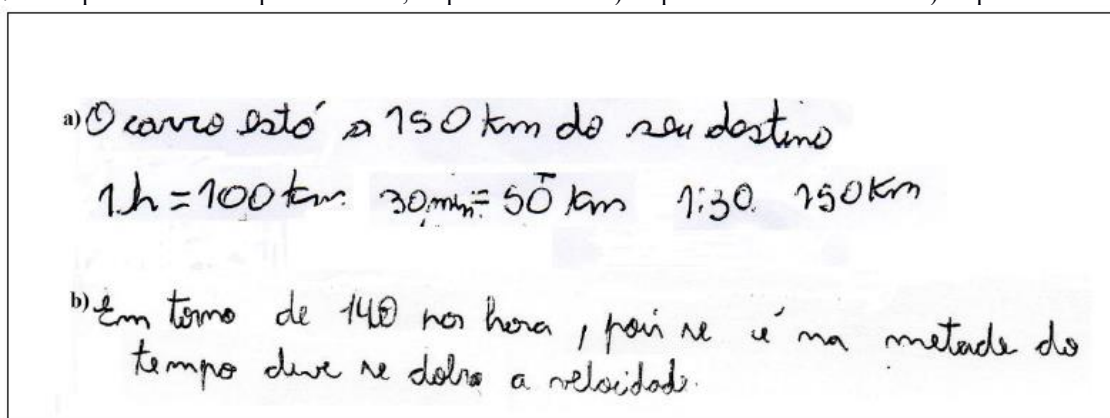 a) O carro está a 150 km do seu destino
1h = 100 km 30 min = 50 km 1:30 150 Km
b) Em torno de 140 por hora, pois se é na metade do
tempo deve se dobra a velocidade.